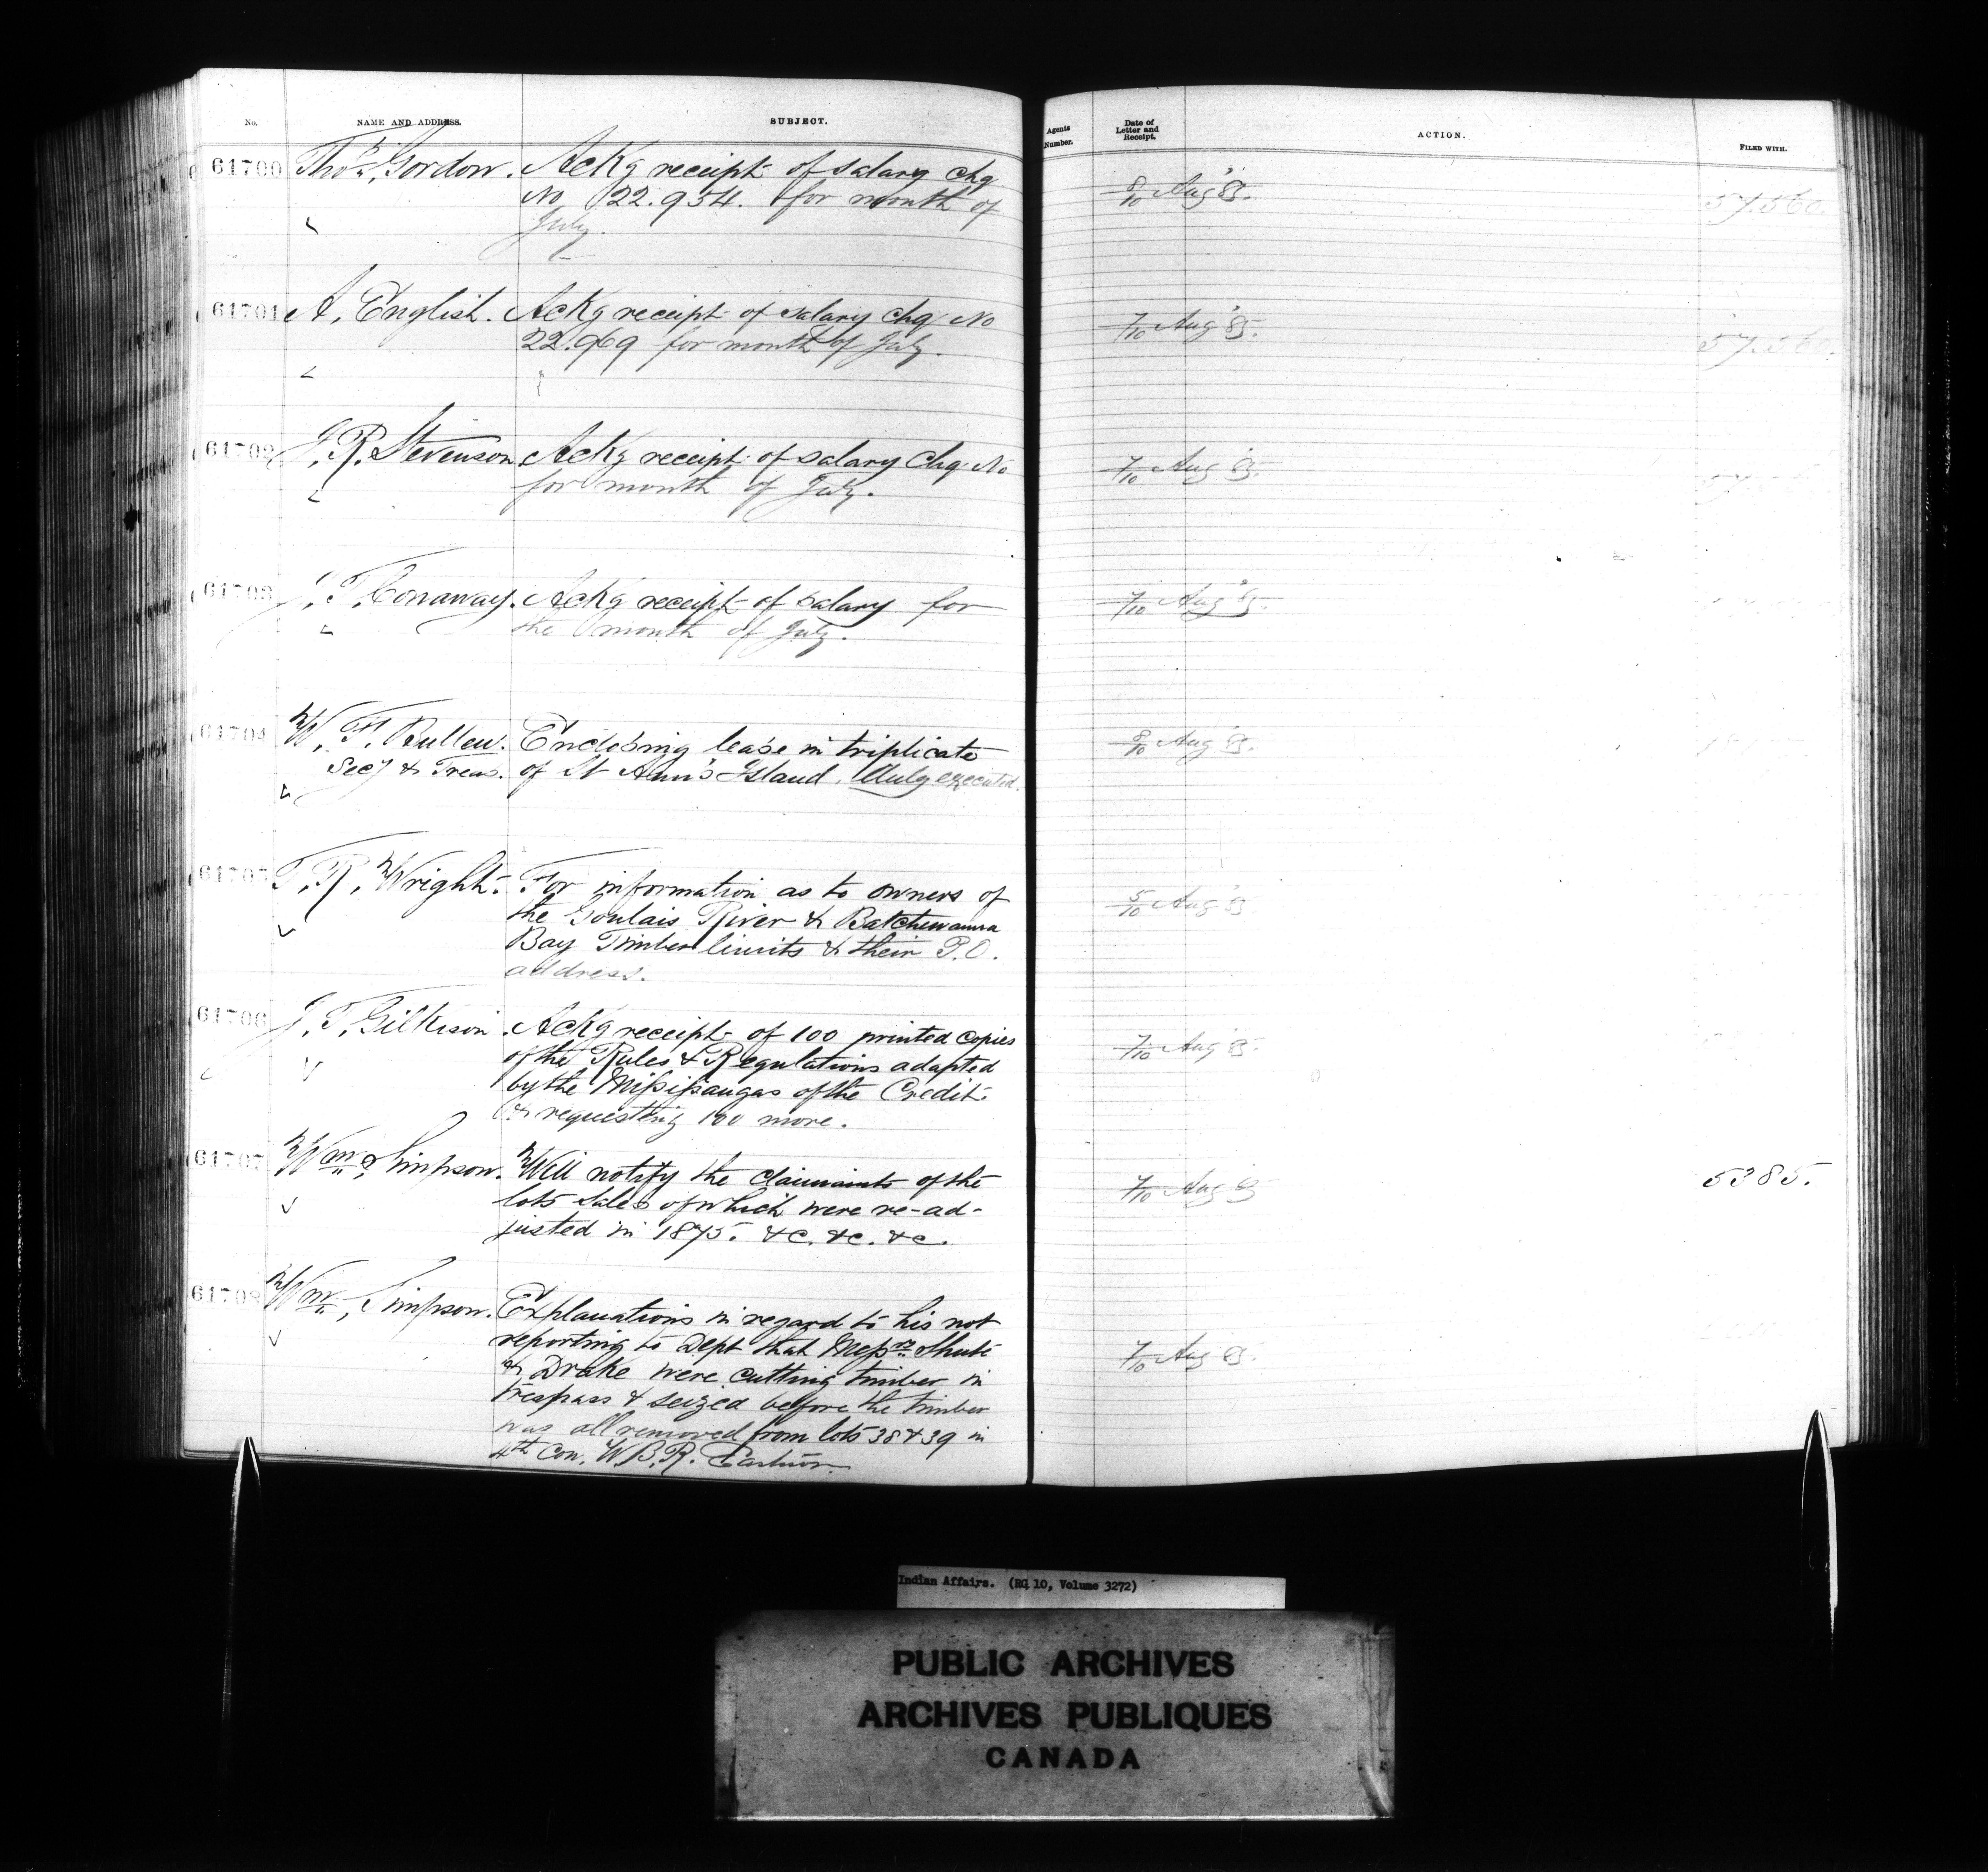 No. NAME AND ADDRESS. SUBJECT. Agents Number. Date of Letter and Receipt. ACTION. FILED WITH.
61700 Thos. Gordon. Ackg receipt of salary chq
No 22.934. for month of
July.
8/10 Aug '85. 57.560.
61701 A. English. Ackg receipt of salary chq No
22.969 for month of July.
7/10 Aug '85. 57.560.
61702 J. R. Stevenson Ackg receipt of salary Chq. No
for month of July.
7/10 Aug '85.
61703 J. T. Conaway. Ackg receipt of salary for
the month of July.
7/10 Aug '85.
61704 W. F. Bullen. Enclosing lease in triplicate
Secy & Treas. of St Ann's Island, duly executed.
8/10 Aug '85.
61705 T. R. Wright. For information as to owners of
the Goulais River & Batchewanna
Bay Timber limits & their P.O.
address.
5/10 Aug '85
61706 J. T. Gilkison Ackg receipt of 100 printed copies
of the Rules & Regulations adapted
by the Missisaugas of the Credit
& requesting 100 more.
7/10 Aug '85.
61707 Wm. Simpson. Will notify the claimants of the
lots sales of which were re-ad-
justed in 1875. &c. &c. &c.
7/10 Aug 85 5385.
61708 Wm. Simpson. Explanations in regard to his not
reporting to Dept that Messrs Shute
& Drake were cutting timber in
trespass & seized before the timber
was all removed from lots 38 & 39 in
4th Con. W.B.R. Eastnor.
7/10 Aug 85.
Indian Affairs. (RG 10, Volume 3272)
PUBLIC ARCHIVES
ARCHIVES PUBLIQUES
CANADA